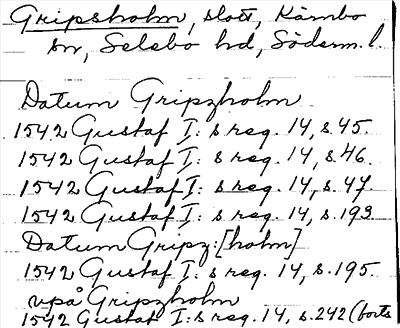 Gripsholm, slott, Kärnbo
sn, Selebo hd, Söderm. l.
Datum Gripzholm
1542 Gustaf I:s reg. 14, s.45.
1542 Gustaf I:s reg. 14, s.46.
1542 Gustaf I:s reg. 14, s.47.
1542 Gustaf I:s reg. 14, s.193
Datum Gripz:[holm]
1542 Gustaf I:s reg. 14, s.195.
vpå Gripzholm
1542 Gustaf I:s reg. 14, s.242 (forts